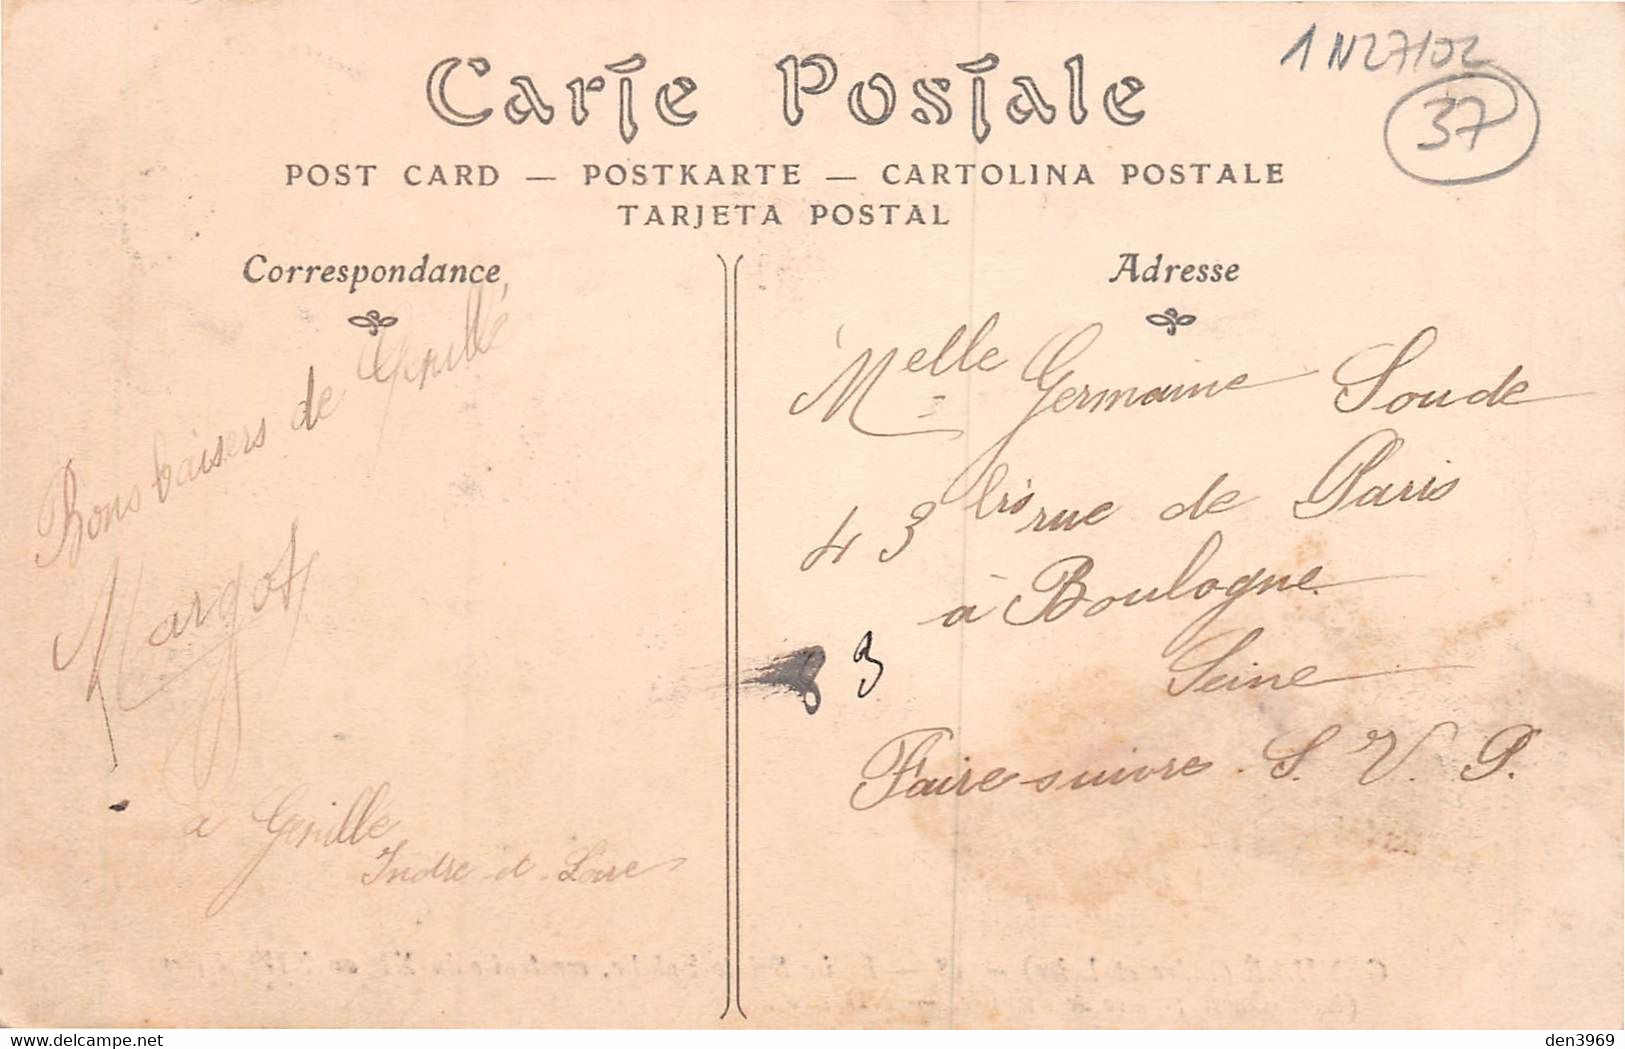 1N27102
37
Carte Postale
POST CARD — POSTKARTE — CARTOLINA POSTALE
TARJETA POSTAL
Correspondance
Bons baisers de Genillé
Margot
à Genillé
Indre-et-Loire
Adresse
Melle Germaine Soude
43 bis rue de Paris
à Boulogne
Seine
3
Faire suivre S. V. P.
den3969